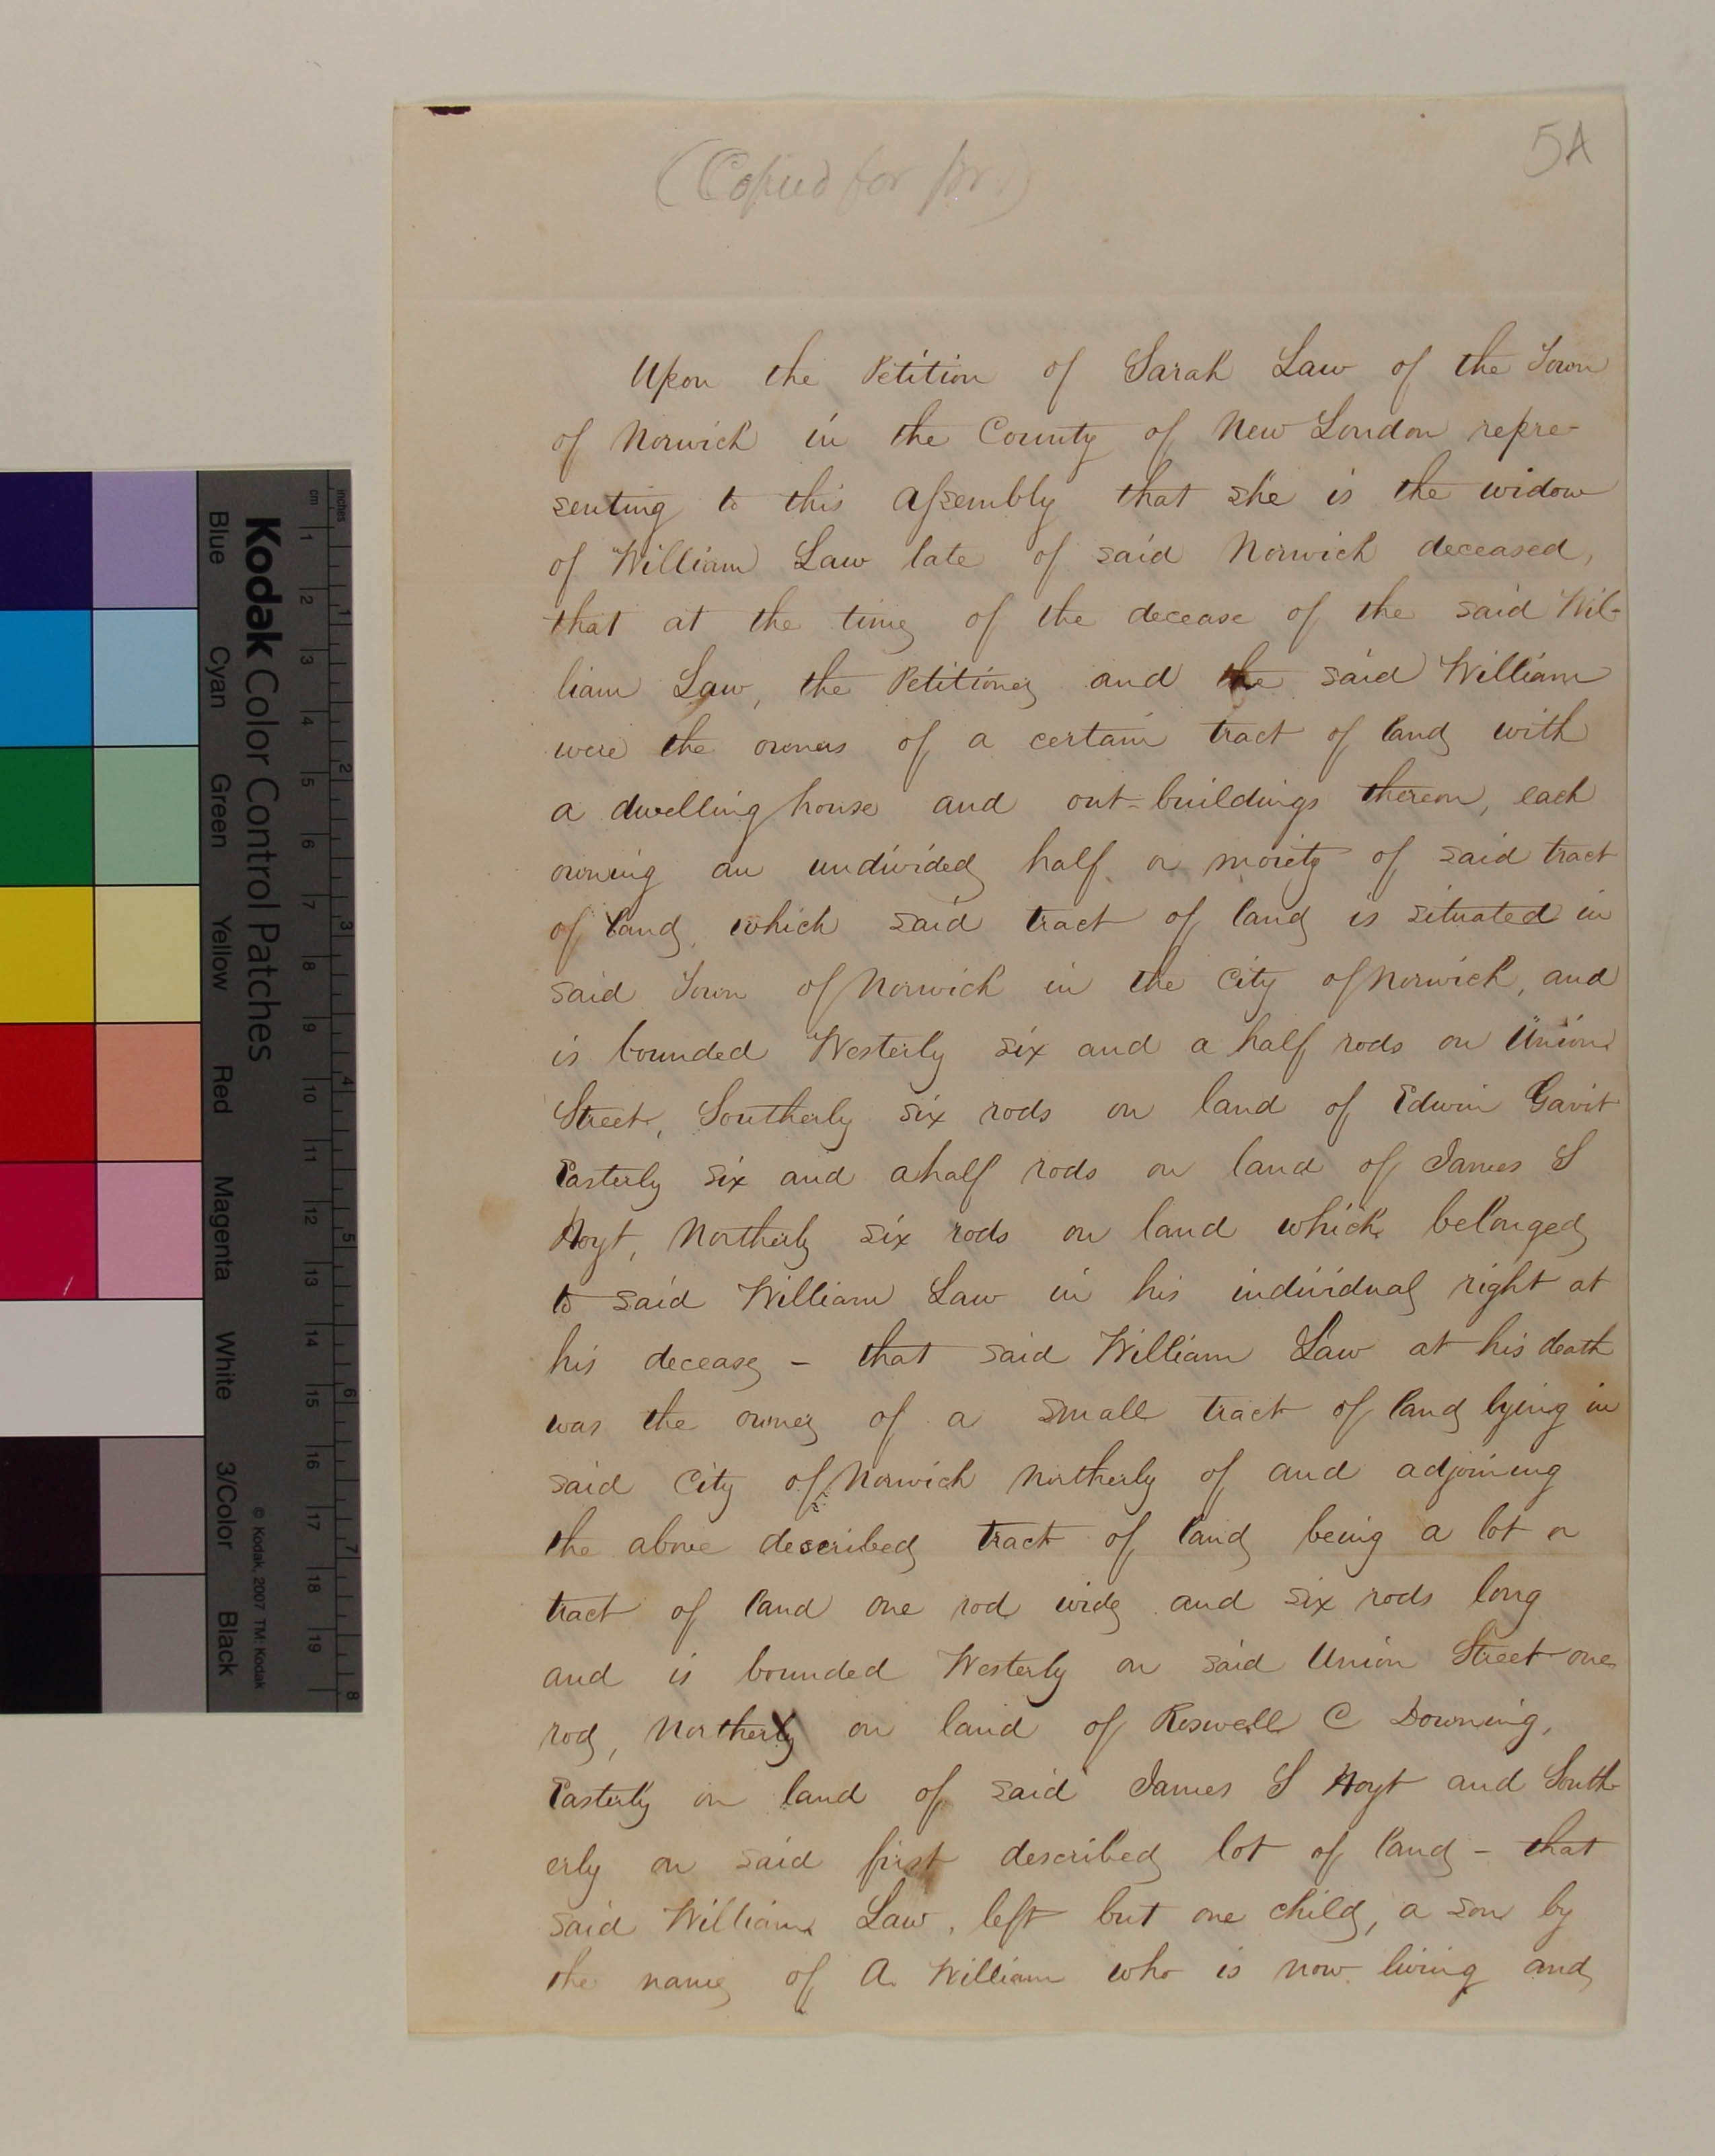 5A
(Copied for pr.)
Upon the Petition of Sarah Law of the Town
of Norwich in the County of New London repre-
senting to this Assembly that she is the widow
of William Law late of said Norwich deceased,
that at the time of the decease of the said Wil-
liam Law, the Petitioner and the said William
were the owners of a certain tract of land with
a dwelling house and out-buildings thereon, each
owning an undivided half or moiety of said tract
of land, which said tract of land is situated in
said Town of Norwich in the City of Norwich, and
is bounded Westerly six and a half rods on Union
Street, Southerly six rods on land of Edwin Gavit
Easterly six and a half rods on land of James S
Hoyt, Northerly six rods on land which belonged
to said William Law in his individual right at
his decease – that said William Law at his death
was the owner of a small tract of land lying in
said City of Norwich northerly of and adjoining
the above described tract of land being a lot or
tract of land one rod wide and six rods long
and is bounded Westerly on said Union Street one
rod, Northerly on land of Roswell C Downing,
Easterly on land of said James S Hoyt and South-
erly on said first described lot of land – that
said William Law, left but one child, a son by
the name of A. William who is now living and
Kodak Color Control Patches
Blue Cyan Green Yellow Red Magenta White 3/Color Black
© Kodak, 2007 TM: Kodak
inches 1 2 3 4 5 6 7 8
cm 1 2 3 4 5 6 7 8 9 10 11 12 13 14 15 16 17 18 19